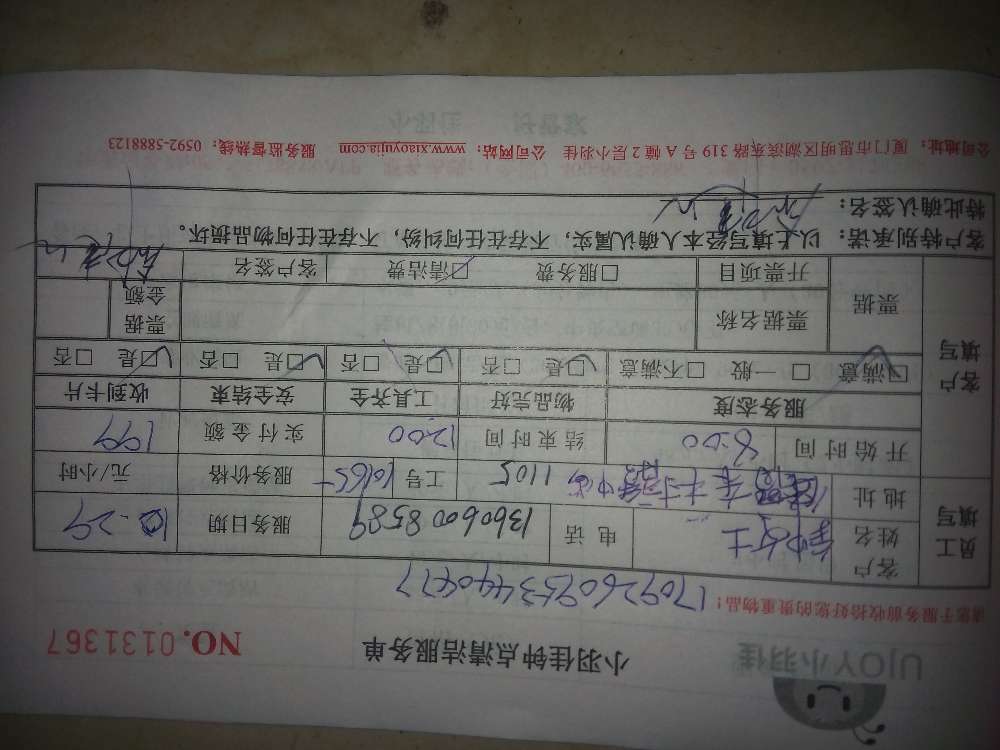 UJOY小羽佳
小羽佳钟点清洁服务单
NO.0131367
请您于服务前收拾好您的贵重物品!
17092609533440477
员工填写
客户姓名 女士 电话 13606008589 服务日期 10.29
地址 1105 工号 10165 服务价格 元/小时
开始时间 8:00 结束时间 12:00 实付金额 199
客户填写
服务态度 物品完好 工具齐全 安全结束 收到卡片
☑满意 □一般 □不满意 ☑是 □否 ☑是 □否 ☑是 □否 ☑是 □否
票据 票据名称 票据金额
开票项目 □服务费 ☑清洁费 客户签名
客户特别承诺:以上填写经本人确认属实,不存在任何纠纷,不存在任何物品损坏。
特此确认签名:
公司地址:厦门市思明区湖滨东路319号A幢2层小羽佳 公司网站:www.xiaoyujia.com 服务监督热线:0592-5888123